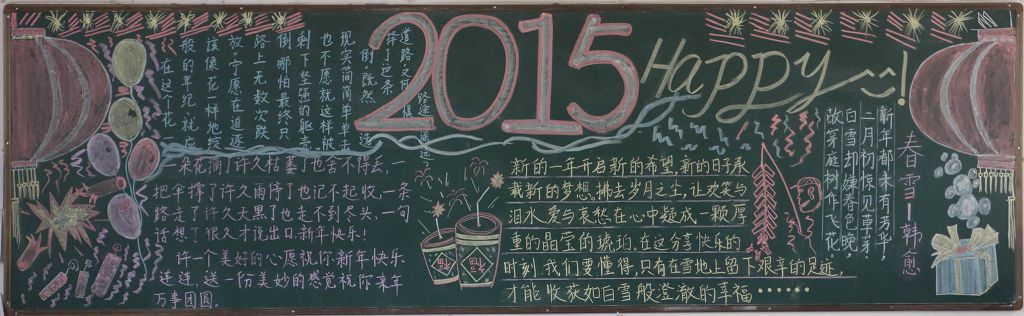 2015
Happy!
在这个花一
般的年纪就应
该像花一样地绽
放宁愿在追逐
路上无数次跌
倒哪怕最终只
剩下坚强的躯壳
也不愿就这样被
现实简简单单击
倒。既然选
择了这条
道路又何惧
路途遥远
朵花摘了许久枯萎了也舍不得丢,一
把伞撑了许久雨停了也记不起收,一条
路走了许久天黑了也走不到尽头,一句
话想了很久才说出口.新年快乐!
许一个美好的心愿祝你新年快乐
连连,送一份美妙的感觉祝你来年
万事团圆.
福
福
新的一年开启新的希望,新的日子承
载新的梦想.拂去岁月之尘,让欢笑与
泪水、爱与哀愁在心中凝成一颗厚
重的晶莹的琥珀.在这分享快乐的
时刻,我们要懂得,只有在雪地上留下艰辛的足迹,
才能收获如白雪般澄澈的幸福······
春雪—韩愈
新年都未有芳华,
二月初惊见草芽.
白雪却嫌春色晚,
故穿庭树作飞花.